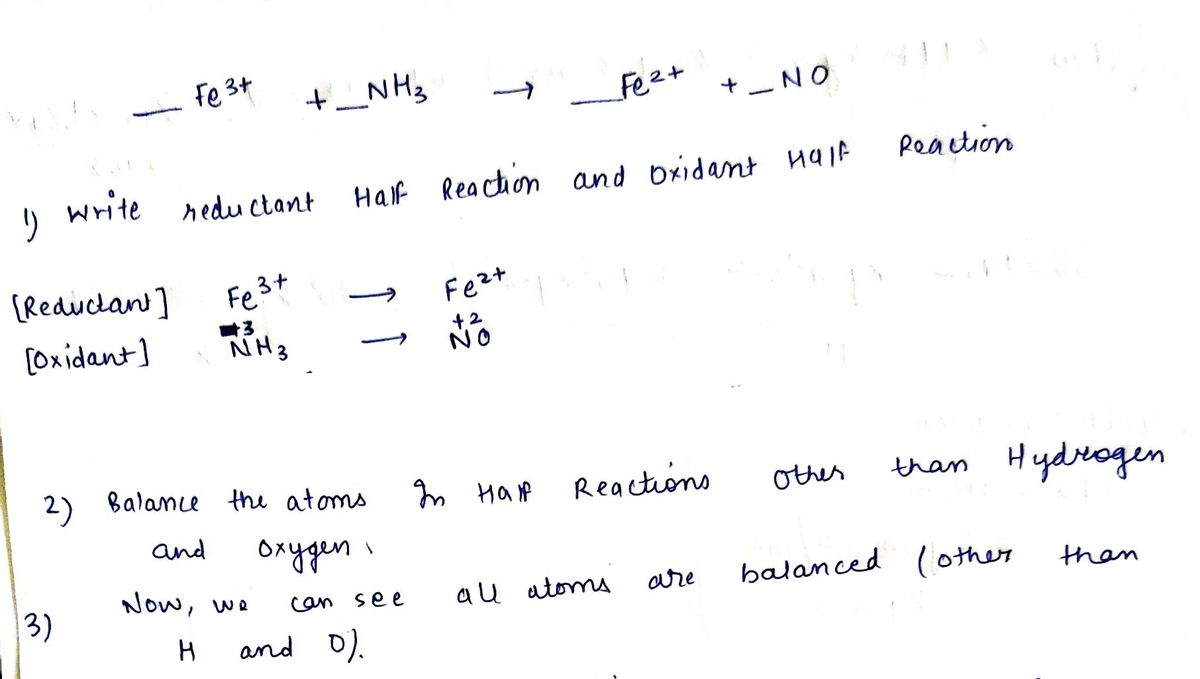 __ Fe³⁺ + _NH₃ → __Fe²⁺ + _NO
1) Write reductant Half Reaction and Oxidant Half Reaction
[Reductant] Fe³⁺ → Fe²⁺
+3 +2
[Oxidant] NH₃ → NO
2) Balance the atoms In Half Reactions Other than Hydrogen
and Oxygen.
3) Now, we can see all atoms are balanced (other than
H and O).